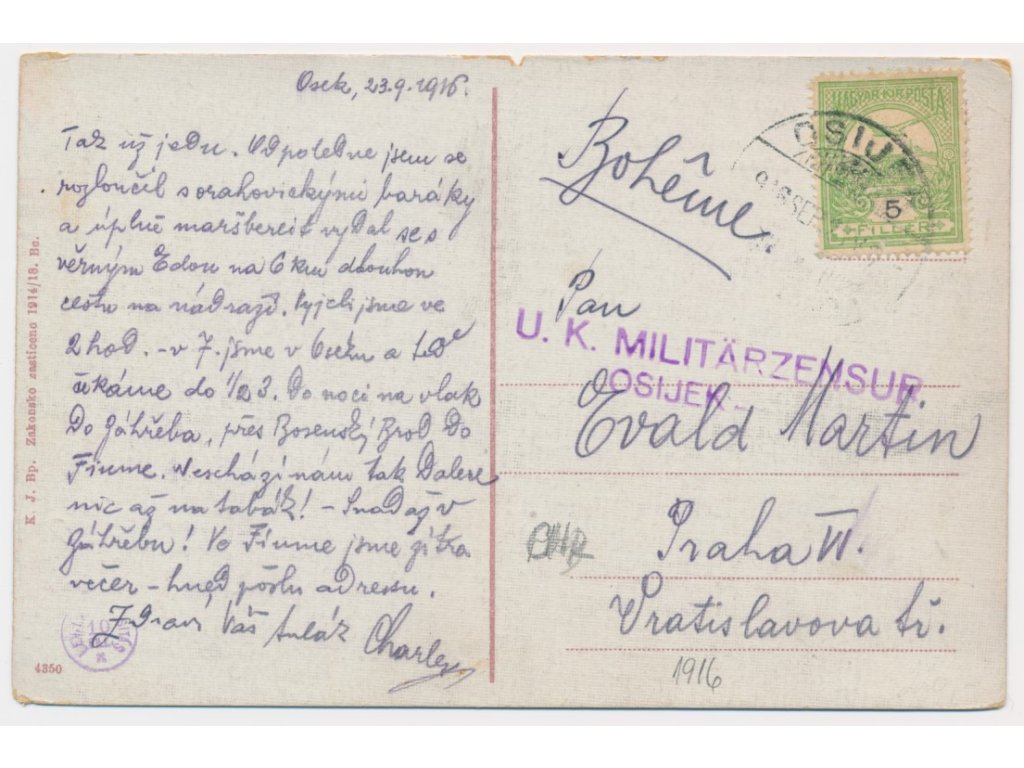 Osek, 23.9.1916.
Tož už jedu. Odpoledne jsem se
rozloučil s orahovickými baráky
a úplně maršbereit vydal se s
věrným Edou na 6 km dlouhou
cestu na nádraží. Vyjeli jsme ve
2 hod. - v 7. jsme v Oseku a teď
čekáme do 1/2 3. Do noci na vlak
Do Záhřeba, přes Bosenský Brod Do
Fiume. Neschází nám tak Dalece
nic až na tabák! - Snad až v
Záhřebu! Ve Fiume jsme zítra
večer - hned pošlu adressu.
Zdraví Váš tulák Charley
K. J. Bp. Zakonsko zasticeno 1914/18. Bc.
4350
MAGYAR KIR. POSTA
5
FILLÉR
OSIJEK
916 SEP
Bohême
Pan
U. K. MILITÄRZENSUR
OSIJEK.
Evald Martin
Praha VI.
Vratislavova tř.
1916